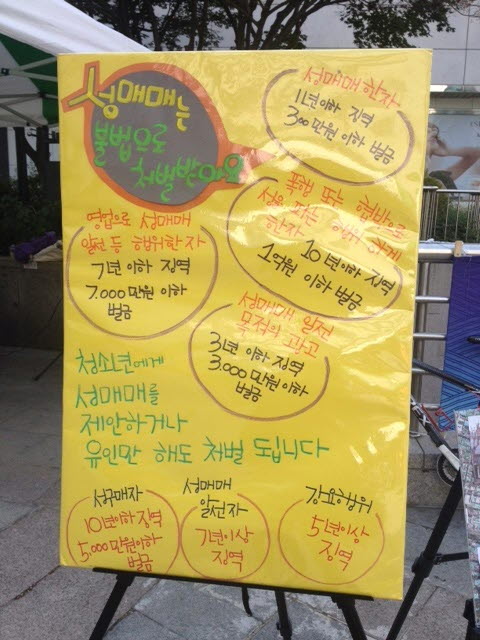 성매매는
불법으로
처벌받아요
성매매 한자
1년이하 징역
300만원 이하 벌금
폭행 또는 협박으로
성을 파는 행위 하게
한자
10년이하 지역
1억원 이하 벌금
영업으로 성매매
알선 등 행위한 자
7년이하 징역
7.000만원 이하
벌금
성매매 알선
목적의 광고
3년 이하 징역
3.000만원 이하
벌금
청소년에게
성매매를
제안하거나
유인만 해도 처벌 됩니다
성구매자
10년이하 지역
5,000만원이하
벌금
성매매
알선자
7년이상
징역
강요행위
5년이상
징역